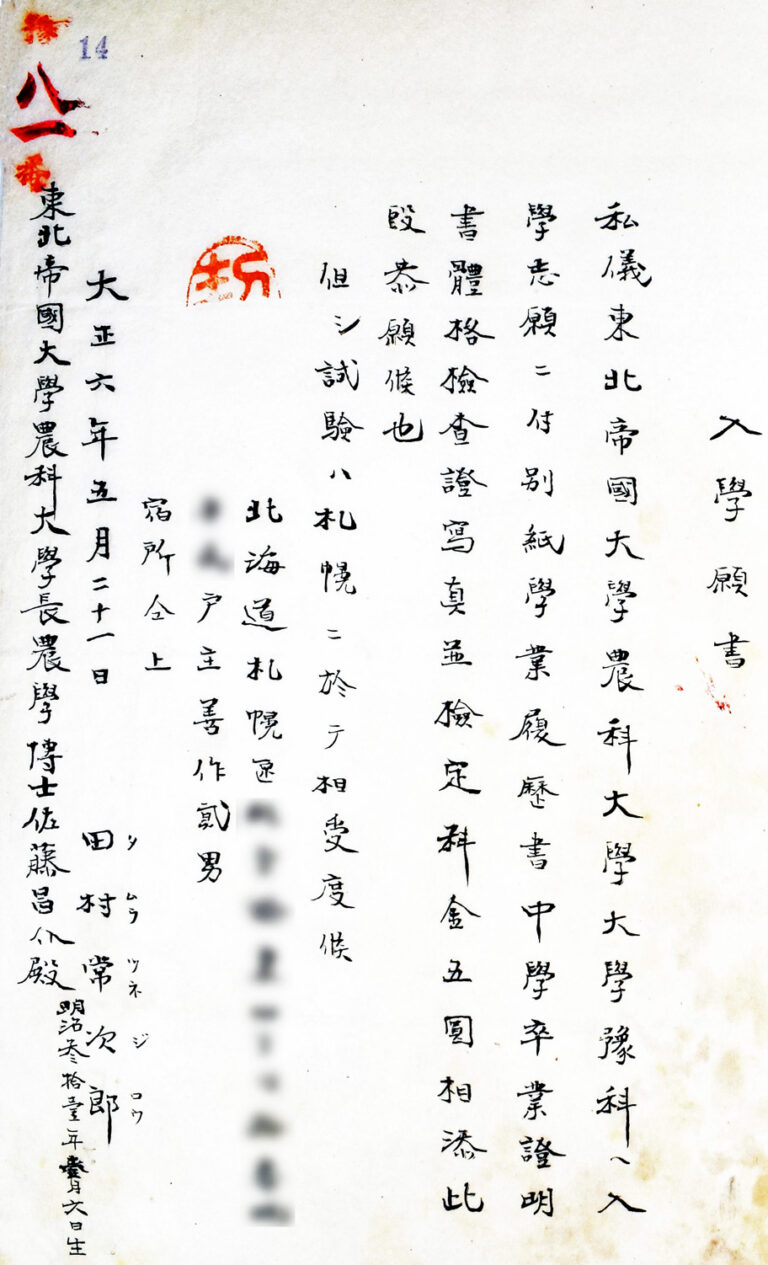 入學願書
私儀東北帝國大學農科大學大學豫科ヘ入
學志願ニ付別紙學業履歷書中學卒業證明
書體格檢査證寫眞並檢定料金五圓相添此
段恭願候也
但シ試驗ハ札幌ニ於テ相受度候
北海道札幌區
戶主善作貳男
宿所仝上
大正六年五月二十一日
田村常次郎
タムラツネジロウ
明治參拾壹年壹月六日生
東北帝國大學農科大學長農學博士佐藤昌介殿
14
八一